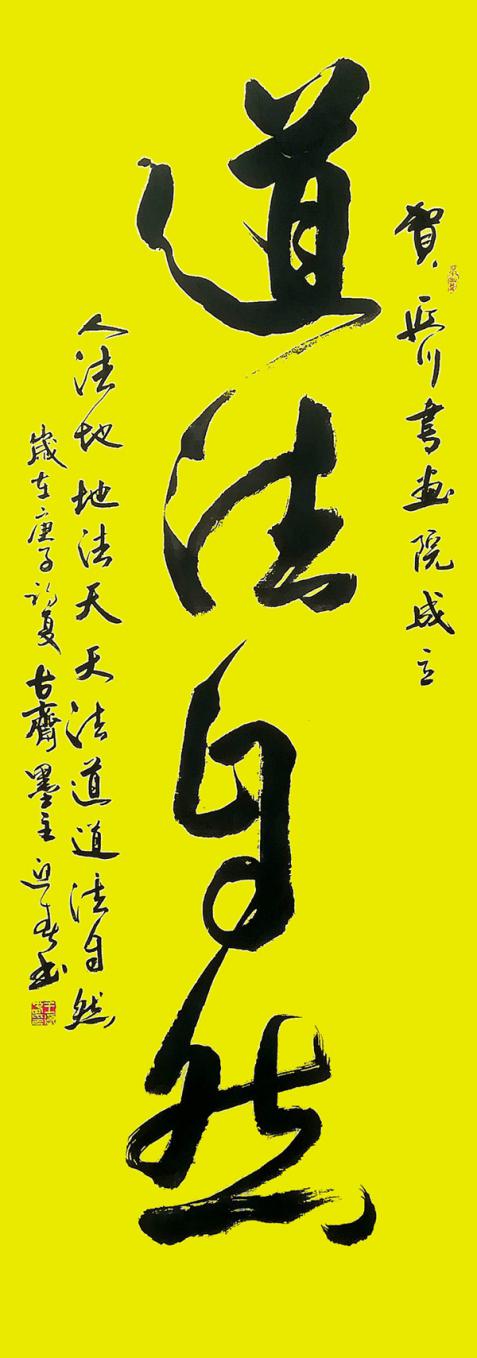 贺延川书画院成立
道法自然
人法地地法天天法道道法自然
歲在庚子初夏古齋墨主迎春书